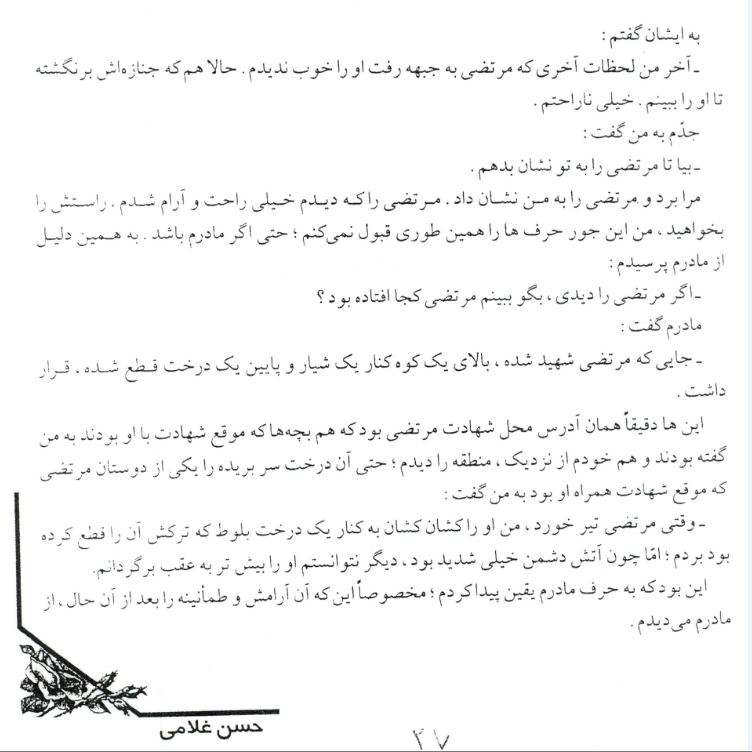 به ایشان گفتم :
ـ آخر من لحظات آخری که مرتضی به جبهه رفت او را خوب ندیدم . حالا هم که جنازه‌اش برنگشته
تا او را ببینم . خیلی ناراحتم .
جدّم به من گفت :
ـ بیا تا مرتضی را به تو نشان بدهم .
مرا برد و مرتضی را به مـن نشـان داد . مـرتضی را کـه دیـدم خـیلی راحت و آرام شـدم . راسـتش را
بخواهید ، من این جور حرف ها را همین طوری قبول نمی‌کنم ؛ حتی اگر مادرم باشد . به همین دلیل
از مادرم پرسیدم :
ـ اگر مرتضی را دیدی ، بگو ببینم مرتضی کجا افتاده بود ؟
مادرم گفت :
ـ جایی که مرتضی شهید شده ، بالای یک کوه کنار یک شیار و پایین یک درخت قـطع شـده . قـرار
داشت .
این ها دقیقاً همان آدرس محل شهادت مرتضی بود که هم بچه‌ها که موقع شهادت با او بودند به من
گفته بودند و هم خودم از نزدیک ، منطقه را دیدم ؛ حتی آن درخت سر بریده را یکی از دوستان مرتضی
که موقع شهادت همراه او بود به من گفت :
ـ وقتی مرتضی تیر خورد ، من او را کشان کشان به کنار یک درخت بلوط که ترکش آن را قطع کرده
بود بردم ؛ امّا چون آتش دشمن خیلی شدید بود ، دیگر نتوانستم او را بیش تر به عقب برگردانم.
این بود که به حرف مادرم یقین پیدا کردم ؛ مخصوصاً این که آن آرامش و طمأنینه را بعد از آن حال ، از
مادرم می‌دیدم .
حسن غلامی
۴۷